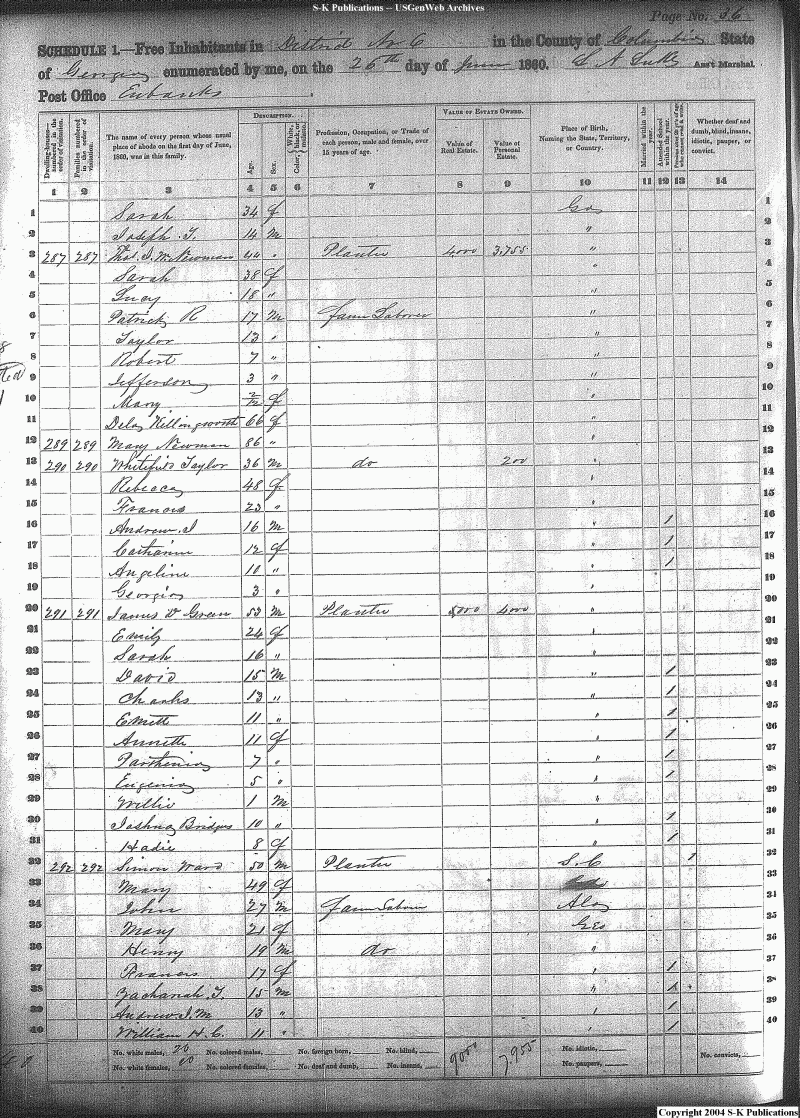 S-K Publications -- USGenWeb Archives
Page No. 36
SCHEDULE 1.—Free Inhabitants in District No 6 in the County of Columbia State
of Georgia enumerated by me, on the 26th day of June 1860. Ass't Marshal
Post Office Eubanks
Dwelling-houses—numbered in the order of visitation.
Families numbered in the order of visitation.
The name of every person whose usual place of abode on the first day of June, 1860, was in this family.
DESCRIPTION.
Age.
Sex.
Color, White, black, or mulatto.
Profession, Occupation, or Trade of each person, male and female, over 15 years of age.
VALUE OF ESTATE OWNED.
Value of Real Estate.
Value of Personal Estate.
Place of Birth, Naming the State, Territory, or Country.
Married within the year.
Attended School within the year.
Persons over 20 y'rs of age who cannot read & write.
Whether deaf and dumb, blind, insane, idiotic, pauper, or convict.
1 2 3 4 5 6 7 8 9 10 11 12 13 14
1 Sarah 34 f Ga 1
2 Joseph T. 14 m " 2
3 287 287 Thos. J. W. Newman 44 " Planter 4000 3,755 " 3
4 Sarah 38 f " 4
5 Lucy 18 " " 5
6 Patrick R 17 m Farm Laborer " 6
7 Taylor 13 " " 7
8 Robert 7 " " 8
9 Jefferson 3 " " 9
10 Mary f " 10
11 Killingsworth 66 f " 11
12 289 289 Mary Newman 86 " " 12
13 290 290 Taylor 36 m do 200 " 14
14 Rebecca 48 f "
15 Francis 23 " " 15
16 Andrew J 16 m " 1 16
17 Catharine 12 f " 1 17
18 Angeline 10 " " 1 18
19 Georgia 3 " " 19
20 291 291 James D Green 53 m Planter 5,000 4000 " 20
21 Emily 24 f " 21
22 Sarah 16 " " 22
23 David 15 m " 1 23
24 Charles 13 " " 1 24
25 Emett 11 " " 1 25
26 Annette 11 f " 1 26
27 Parthenia 7 " " 1
28 Eugenia 5 " " 1 28
29 Willie 1 m " 29
30 Joshua Bridges 10 " " 1 30
31 Hadie 8 f " 1 31
32 292 292 Simon Ward 50 m Planter S.C 1 32
33 Mary 49 f 33
34 John 27 m Farm Labour Ala
35 Mary 21 f Geo 35
36 Henry 19 m do " 36
37 Francis 17 f " 1
38 Zachariah T. 15 m " 1
39 Andrew J. M 13 " " 1 39
40 William H. C. 11 " " 1 40
No. white males, 20 No. colored males, No. foreign born, No. blind, 9000 7,955 No. idiotic, No. convicts,
No. white females, 20 No. colored females, No. deaf and dumb, No. insane, No. paupers,
Copyright 2004 S-K Publications